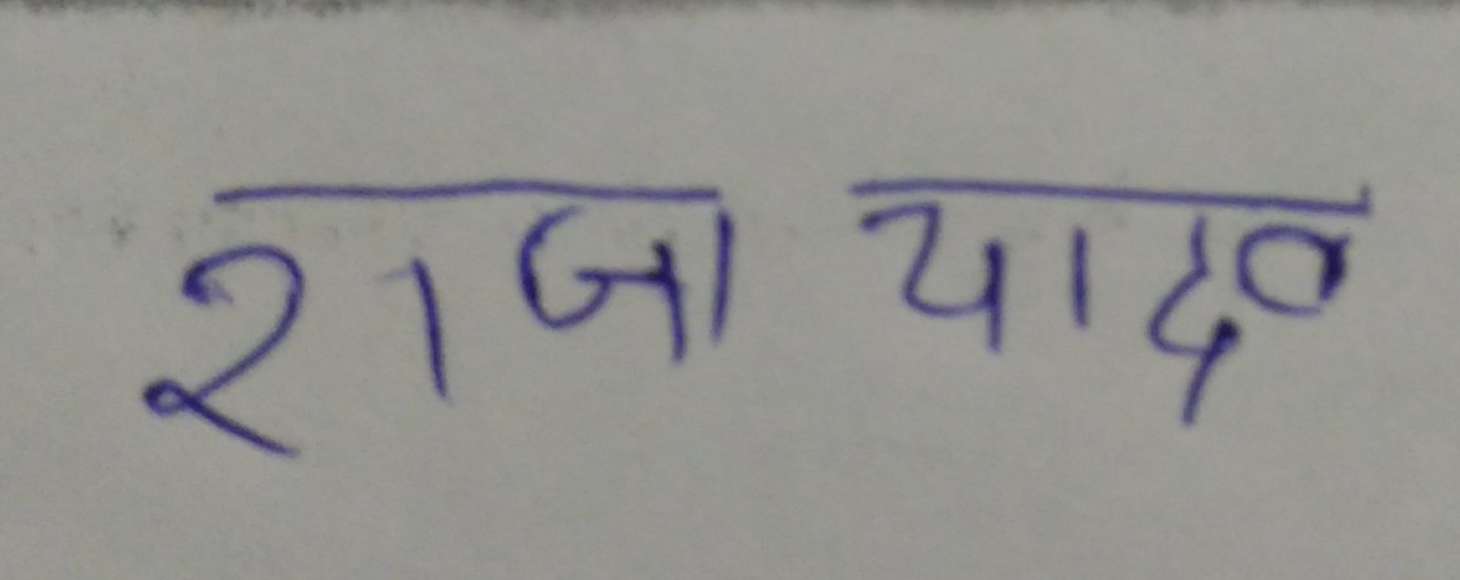 राजा यादव